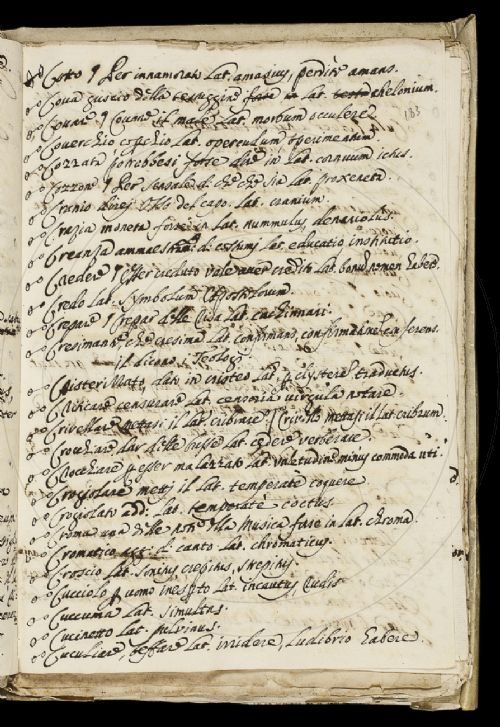 Cotto ¶ Per innamorato Lat. amasius, perdite amans.
Cova guscio della testuggine forse in lat. testa chelonium.
Covare ¶ Covare il male Lat. morbum occulere
183
Coverchio coperchio Lat. operculum operimentum
Cozzata potrebbesi forse dire in lat. cornuum ictus.
Cozzone ¶ Per sensale di che che sia lat. proxeneta.
Cranio Osso del capo. lat. cranium
Crazia moneta forse in lat. nummulus, denariolus.
Creanza ammaestram. di costumi lat. educatio institutio.
Credere ¶ Esser creduto vale aver credito lat. bonum nomen habere.
Credo lat. Symbolum Apostolorum.
Crepare ¶ Crepar delle risa lat. cachinnari.
Cresimante che cresima lat. confirmans, confirmationem ferens.
il dicono i Teologi
Cristerizzato, lat. clystere traductus.
Criticare censurare Lat. censoria virgula notare
Crivellare metaf. il lat. cribrare ¶ Crivello metaf. il lat. cribrum.
Crocchiare dar delle busse lat. cedere verberare
Crocchiare ¶ esser malazzato lat. valetudine minus commoda uti.
Crogiolare metaf. il lat. temperate coquere.
Crogiolato add. lat. temperatè coctus.
Croma una delle note della Musica forse in lat. chroma.
Cromatico agg. di canto Lat. chromaticus.
Croscio Lat. sonitus crepitus, strepitus.
Cucciolo ¶ uomo inesperto lat. incautus, rudis
Cuccuma Lat. simultas.
Cucinetto Lat. pulvinus.
Cuculiare, beffare lat. irridere, ludibrio habere